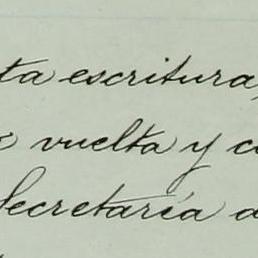 ta escritura,
vuelta y c
Secretaría d